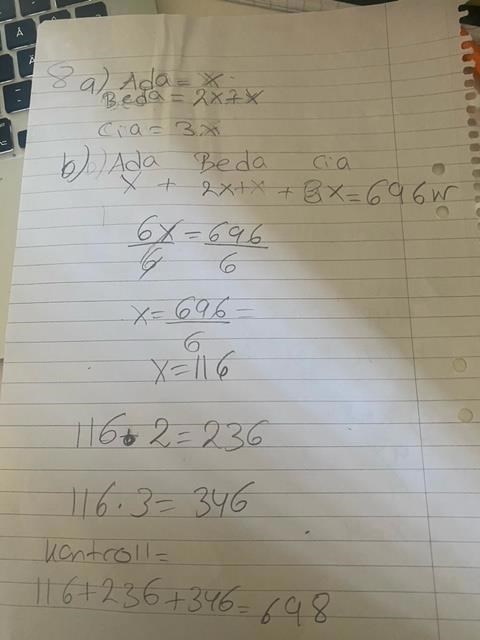 8 a) Ada = x
Beda = 2x+x
Cia = 3x
b) Ada Beda Cia
x + 2x+x + 3x = 696 kr
6x/6 = 696/6
x = 696/6 =
x = 116
116 · 2 = 236
116 · 3 = 346
kontroll =
116+236+346=698